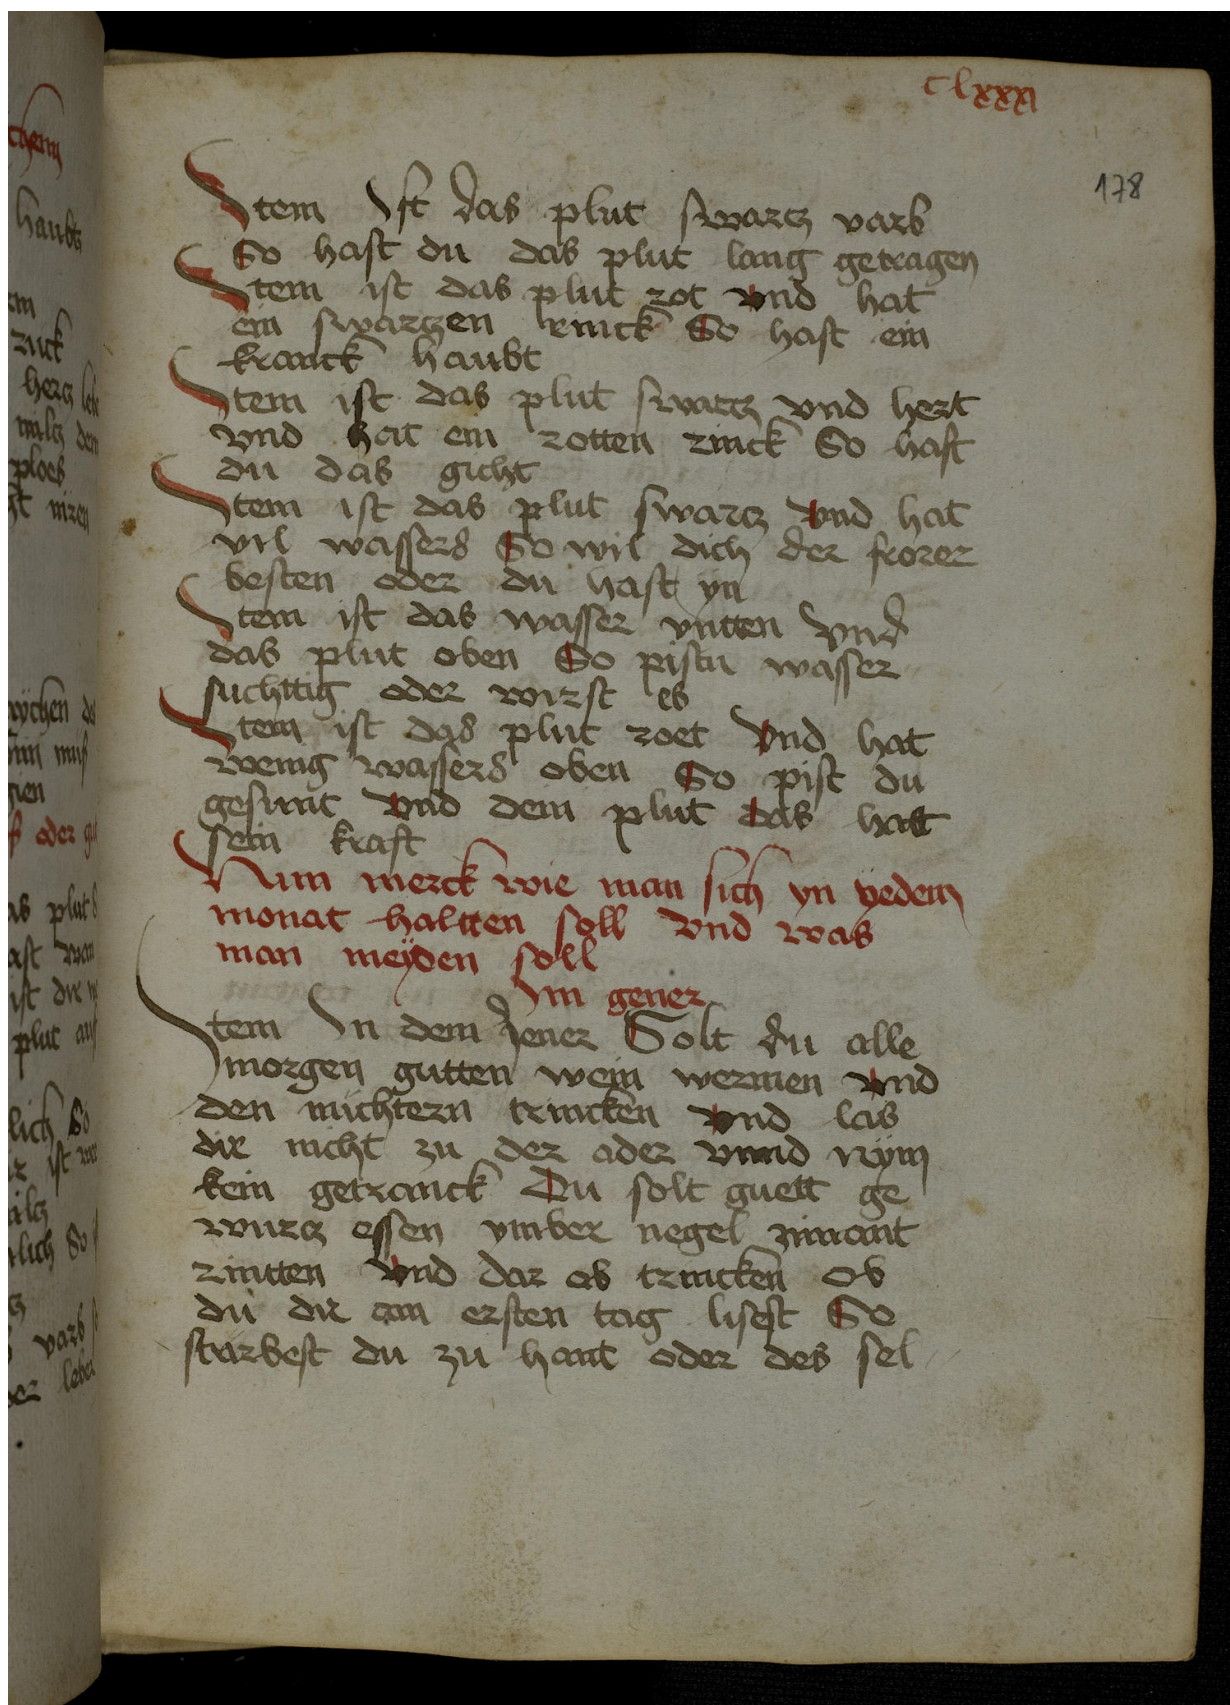 clxxxi
178
Item Ist das plut swartz varb
So hast du das plut lang getragen
Item ist das plut rot vnd hat
ein swartzen rinck So hast ein
kranck haubt
Item ist das plut swartz vnd hert
vnd hat ein rotten rinck So hast
du das gicht
Item ist das plut swartz vnd hat
vil wassers So wil dich der frorer
besten oder du hast yn
Item ist das wasser vntten vnd
das plut oben So pistu wasser
suchttig oder wirst es
Item ist das plut roet vnd hat
wenig wassers oben So pist du
gesunt vnd dein plut das hatt
sein kraft
Nun merck wie man sich yn yedem
monat haltten soll vnd was
man meyden soll
Im gener
Item In dem Jener Solt du alle
morgen gutten wein wermen vnd
den nüchtern trincken vnd las
dir nicht zu der ader vnnd nym
kein getranck Du solt guett ge
wurtz essen ymber negel zimant
rintten vnd dar ob trincken Ob
du dir am ersten tag lisest So
starbest du zu hant oder des sel